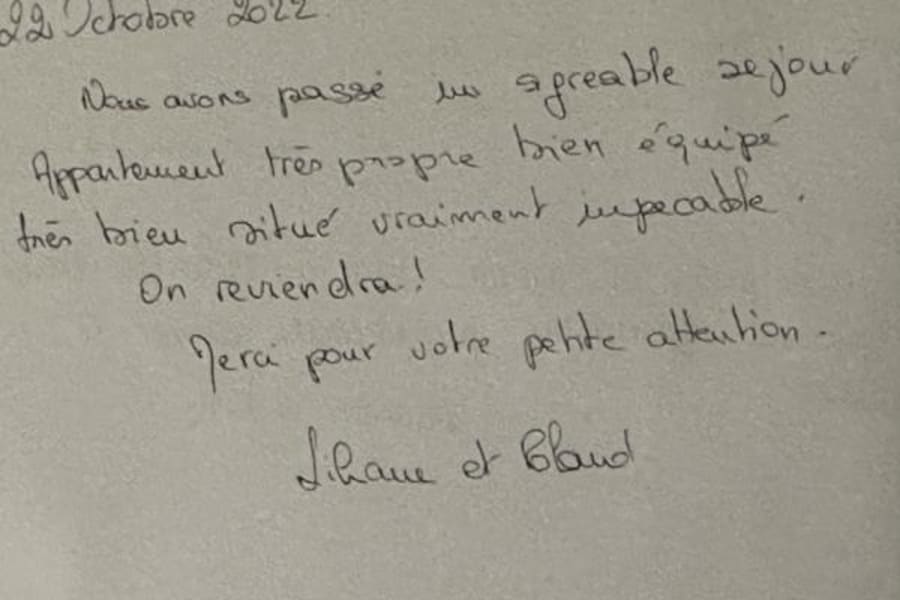 22 Octobre 2022.
Nous avons passé un agreable sejour
Appartement très propre bien équipé
très bien situé vraiment impecable.
On reviendra!
Merci pour votre petite attention.
Liliane et Claud